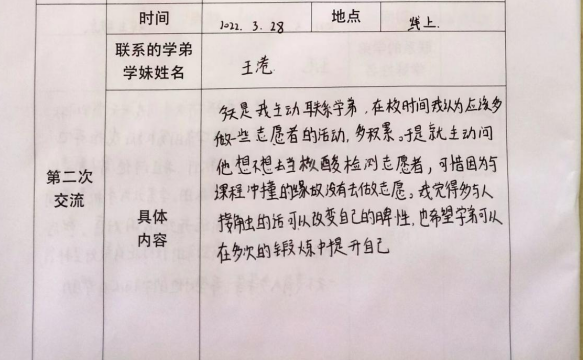 时间 2022. 3. 28 地点 线上.
联系的学弟
学妹姓名
王港
第二次
交流
具体
内容
今天是我主动联系学弟,在校时间我认为应该多
做一些志愿者的活动,多积累。于是就主动问
他想不想去当核酸检测志愿者,可惜因为与
课程冲撞的缘故没有去做志愿。我觉得多与人
接触的话可以改变自己的脾性,也希望学弟可以
在多次的锻炼中提升自己